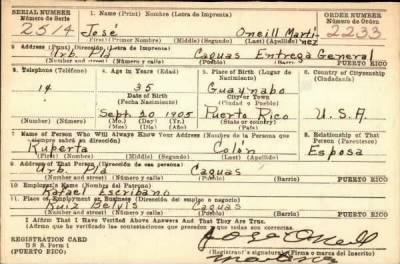 SERIAL NUMBER 1. Name (Print) Nombre (Letra de Imprenta) ORDER NUMBER
Número de Serie Número de Orden
2514 José Oneill Martí 2233
nez
(First) (Primer Nombre) (Middle) (Segundo) (Last) (Apellido)
2 Address (Print) Dirección (Letra de Imprenta)
Urb. Plá Caguas Entrega General
(Number and street) (Número y calle) (Pueblo) (Barrio) PUERTO RICO
3. Telephone (Teléfono) 4. Age in Years (Edad) 5. Place of Birth (Lugar de Nacimiento) 6. Country of Citizenship (Ciudadanía)
35 Guaynabo
Date of Birth City or Town
(Fecha Nacimiento) (Ciudad o Pueblo)
Sept. 20 1905 Puerto Rico U.S.A.
Number) (Número) (Mo.) (Day) (Yr.) (State or country)
(Mo.) (Día) (Año) (Estado o país)
7 Name of Person Who Will Always Know Your Address (Nombre de la Persona que siempre sabrá su dirección) 8. Relationship of That Person (Parentesco)
Ruperta Colón Esposa
(First) (Primer Nombre) (Middle) (Segundo) (Last) (Apellido)
9 Address of That Person (Dirección de esa persona)
Urb. Plá Caguas
(Number and street) (Número y calle) (Pueblo) (Barrio) PUERTO RICO
10 Employer's Name (Nombre del Patrono)
Rafael Escribano
11. Place of Employment or Business (Dirección del empleo o negocio)
Ruiz Belvis Caguas
(Number and street) (Número y calle) (Pueblo) (Barrio) PUERTO RICO
I Affirm That I Have Verified Above Answers And That They Are True.
(Afirmo que he verificado las contestaciones que anteceden y que son ciertas.)
REGISTRATION CARD José Oneill
D S S. Form 1
(PUERTO RICO) (Registrant's signature) (Firma o marca del Inscrito)
Martínez